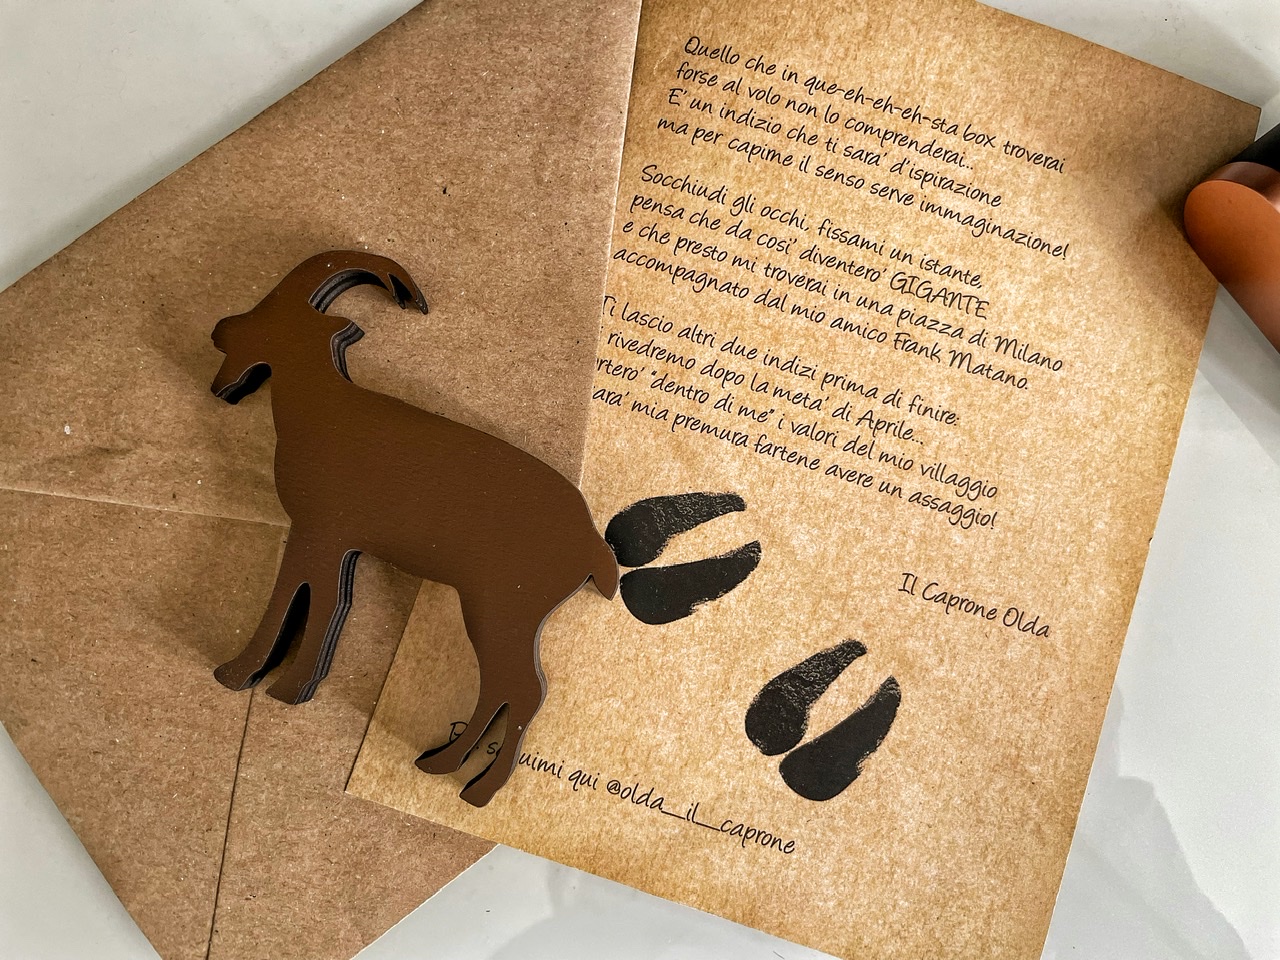 Quello che in que-eh-eh-eh-sta box troverai
forse al volo non lo comprenderai...
E' un indizio che ti sara' d'ispirazione
ma per capirne il senso serve immaginazione!
Socchiudi gli occhi, fissami un istante,
pensa che da cosi' diventero' GIGANTE
e che presto mi troverai in una piazza di Milano
accompagnato dal mio amico Frank Matano.
Ti lascio altri due indizi prima di finire:
rivedremo dopo la meta' di Aprile...
"dentro di me" i valori del mio villaggio
mia premura fartene avere un assaggio!
Il Caprone Olda
qui @olda__il__caprone